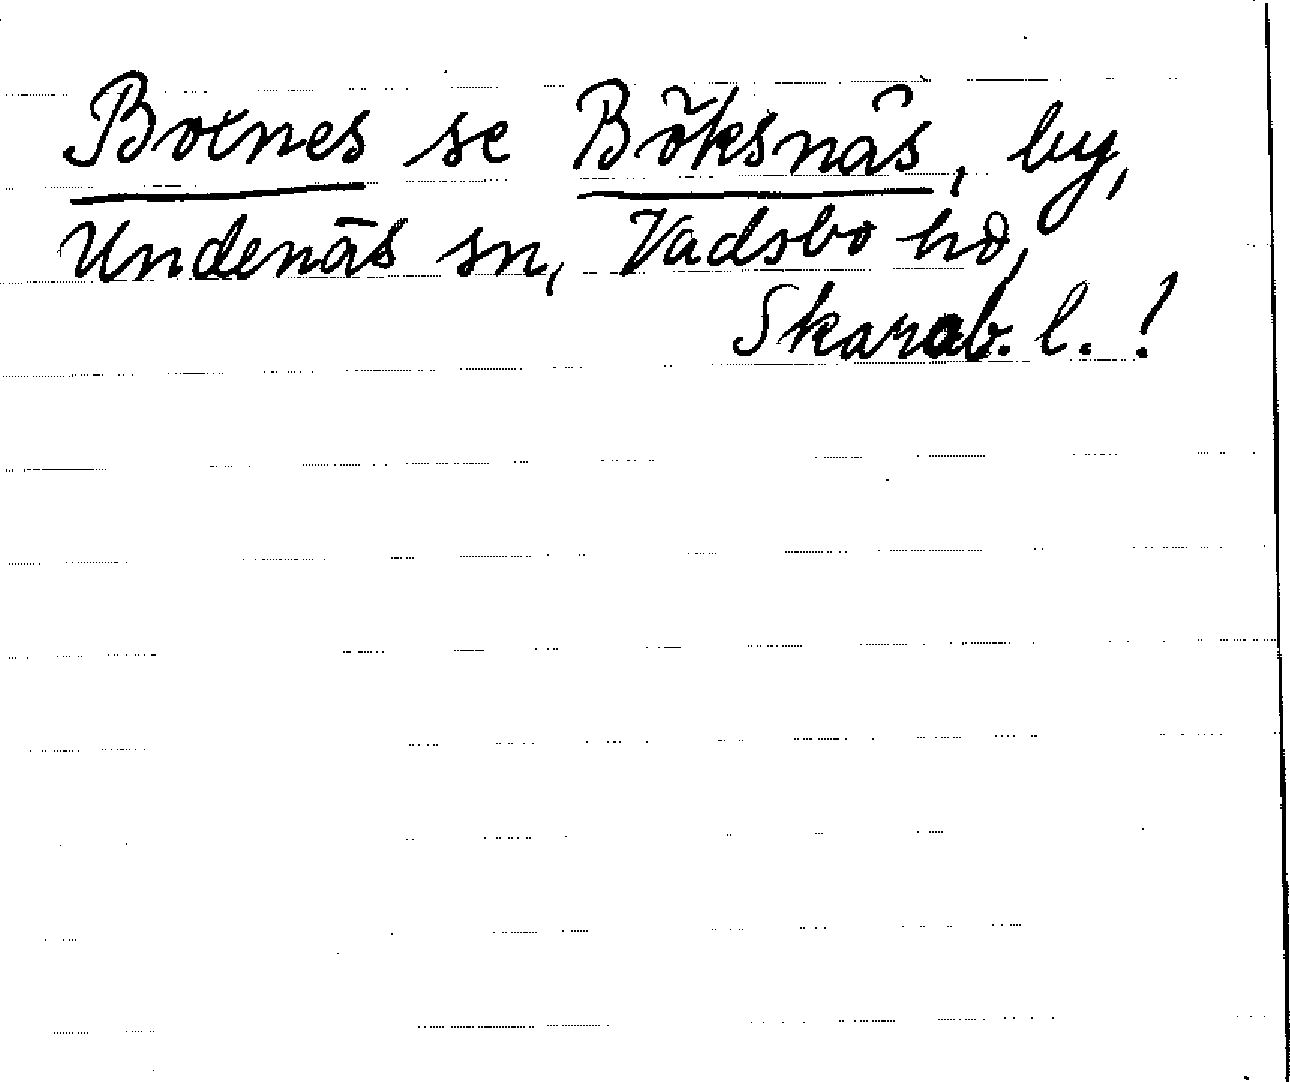 Botnes se Böksnäs, by,
Undenäs sn, Vadsbo hd,
Skarab. l. !